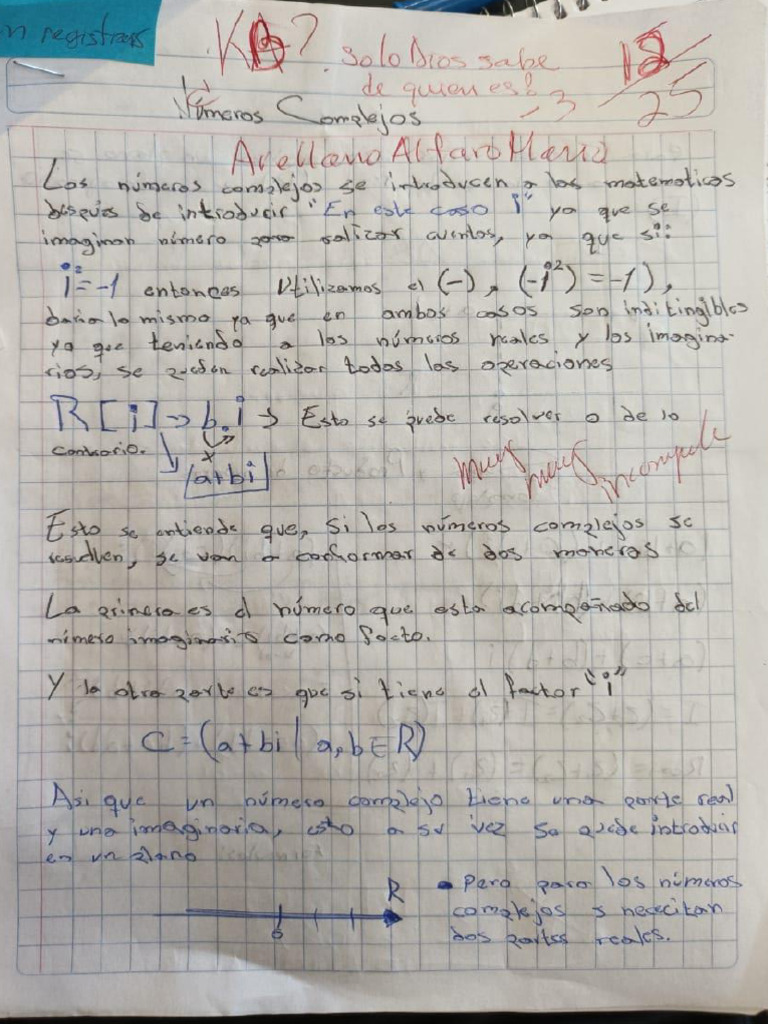 n registrars
KO?. solo Dios sabe
de quien es?
18
-3
25
Números Complejos
Avellano Alfaro Mario
Los números complejos se introducen a los matematicos
despues de introducir "En este caso i" ya que se
imaginan número para realizar cuentos, ya que si:
i²=-1 entonces Utilizamos el (-), (-i²) = -1),
daria lo mismo ya que en ambos casos son inditingibles
ya que teniendo a los números reales y los imagina-
rios, se pueden realizar todas las operaciones
R[i] → b.i → Esto se puede resolver o de lo
contrario.
x
a+bi
muy muy incomplet
Esto se entiende que, si los números complejos se
resuelven, se van a conformar de dos maneras
La primera es el número que esta acompañado del
número imaginario como facto.
Y la otra parte es que si tiene el factor "i"
C = (a+bi | a,b ∈ R)
Asi que un número complejo tiene una parte real
y una imaginaria, esto a su vez se puede introducir
en un plano
R
0
• Pero para los números
complejos s necesitan
dos partes reales.